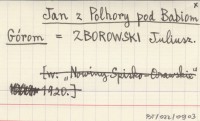 Jan z Polhory pod Babiom
Górom = ZBOROWSKI Juliusz.
[w. „Nowiny Spisko-Orawskie”
1920.]